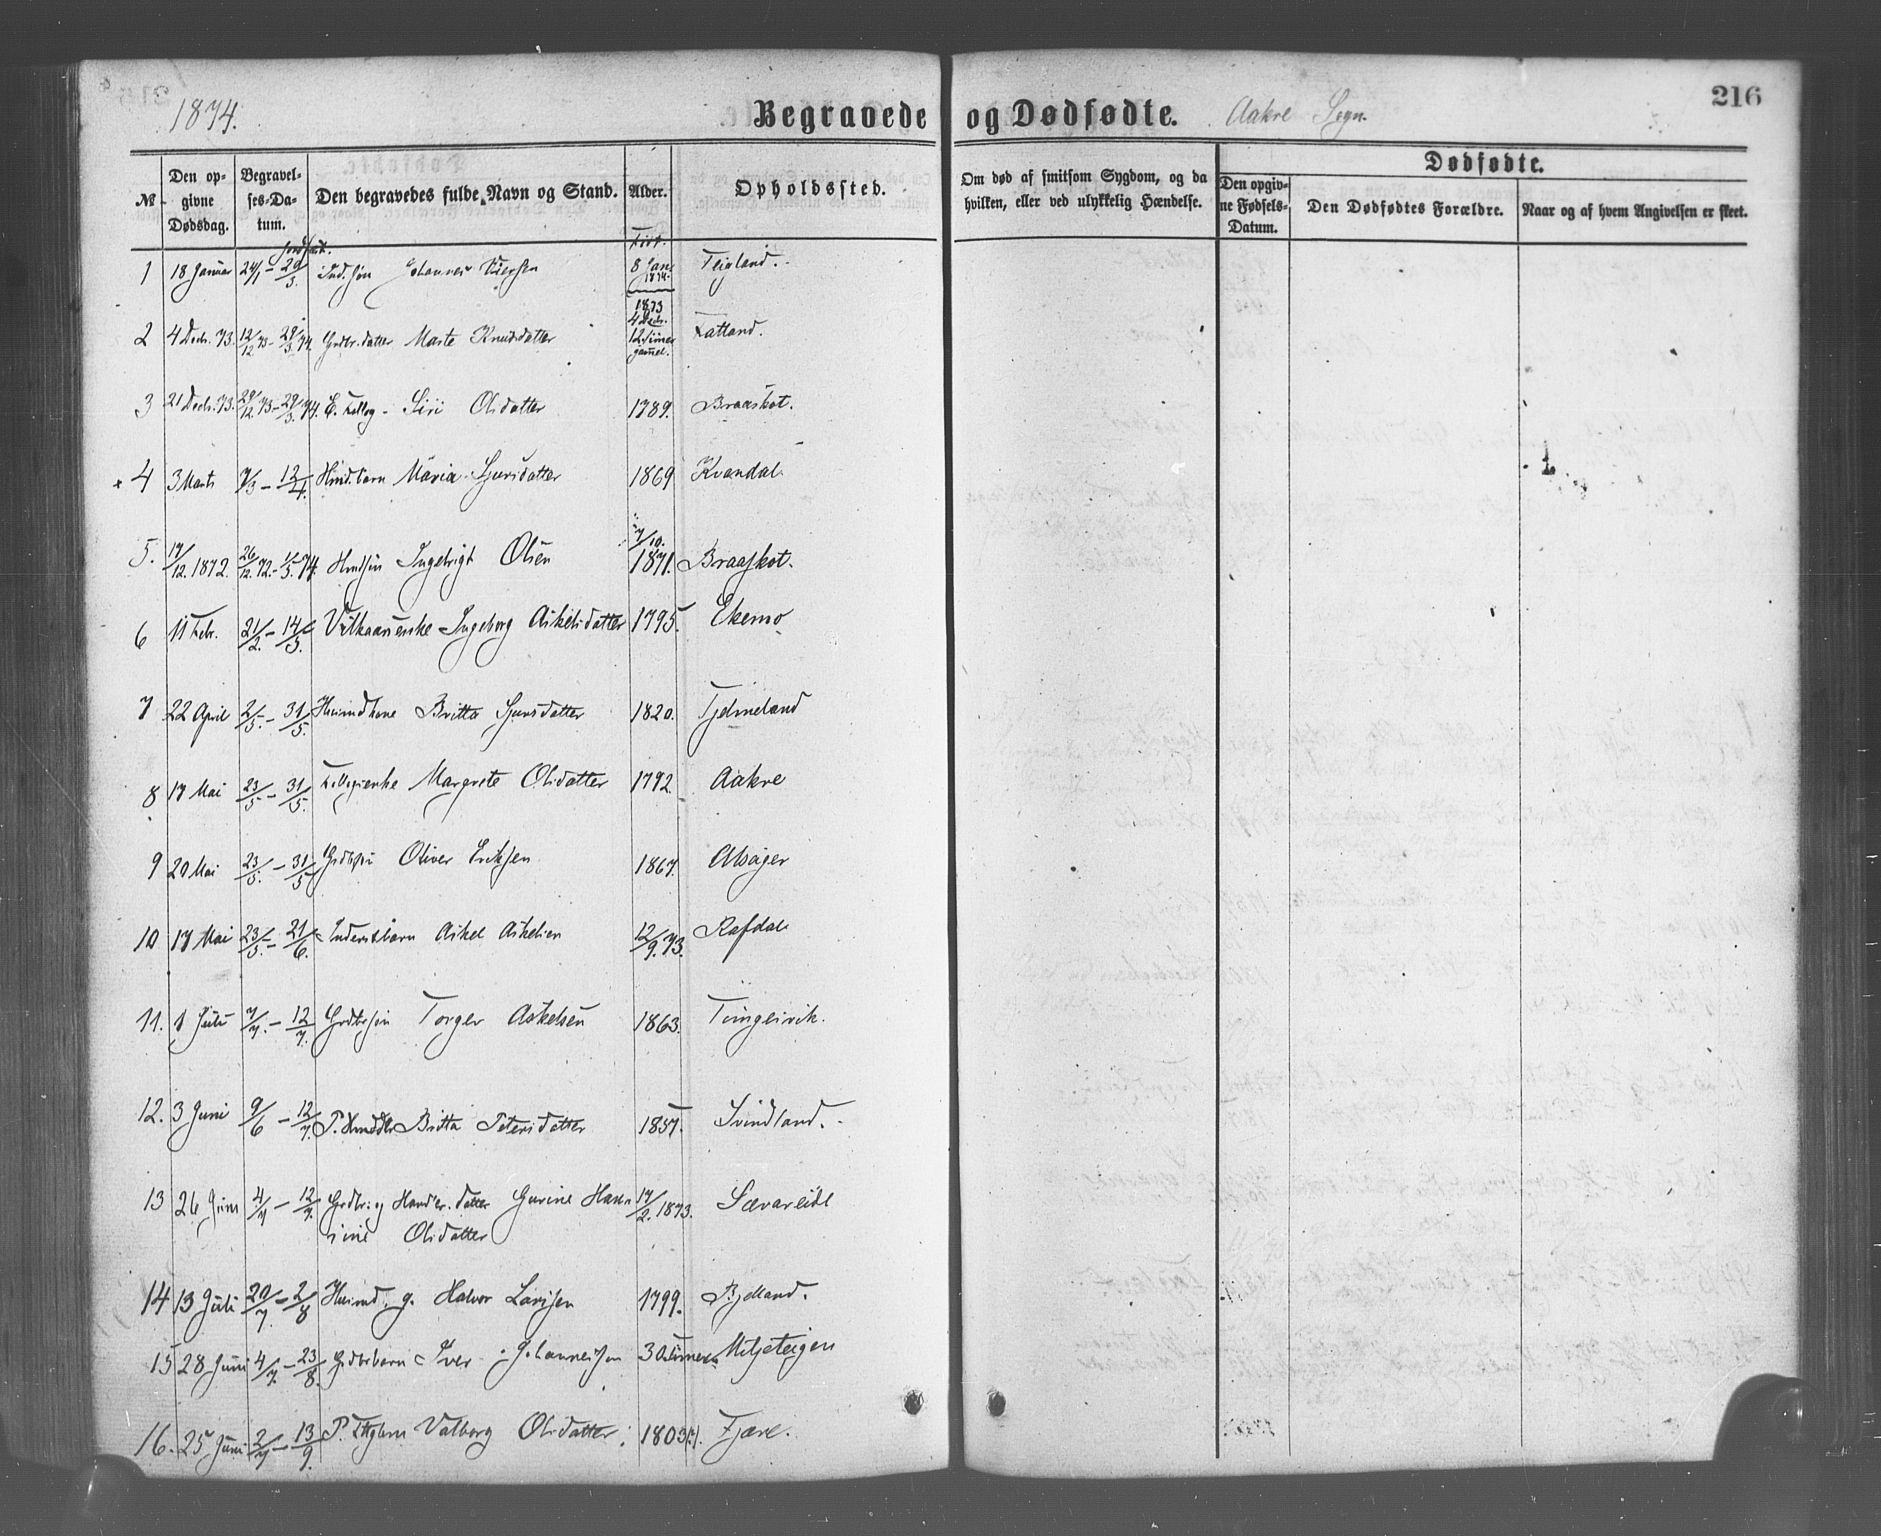 1874.
Begravede og Dødfødte.
Aakre Sogn.
216
№
Den opgivne Dødsdag.
Begravelses-Datum.
Den begravedes fulde Navn og Stand.
Alder.
Opholdssted.
Om død af smitsom Sygdom, og da hvilken, eller ved ulykkelig Hændelse.
Dødfødte.
Den opgivne Fødsels-Datum.
Den Dødfødtes Forældre.
Naar og af hvem Angivelsen er skeet.
1 18 Januar 24/1 - 29/3. Johannes 8 Jan. 1874. Teigland.
2 4 Decbr. 73. 12/12 73 - 29/3 74. Grdbr. datter Marte Knudsdatter 1873 4 Decbr. 12 Timer gammel. Fatland.
3 21 Decbr. 73. 29/12 73 - 29/3 74. Siri Olsdatter 1789. Braaskot.
4 3 Marts 7/3 - 12/4. Hmdbarn Maria Sjursdatter 1869 Kvandal
5. 17/12. 1872. 26/12 72. - 1/5. 74. Hmdsøn Ingebrigt Olsen 7/10. 1871. Braaskot.
6 11 Febr. 21/2. - 14/5. Vilkaarsenke Ingeborg Askelsdatter 1795. Ekemo
7 22 April 2/5. - 31/5. Huusmdkone Britta Sjursdatter 1820. Tjelmeland
8 17 Mai 23/5 - 31/5. Margrete Olsdatter 1792. Aakre
9 20 Mai 23/5. - 31/5 Grdbrsøn Oliver Eriksen 1867. Alsager
10 17 Mai 23/5. - 21/6. Inderstbarn Askel Askelsen 12/9. 73. Rafdal
11. 1 Juli 7/7. - 12/7. Grdbrsøn Torger Askelsen 1863. Tungesvik.
12. 3 Juni 9/6 - 12/7. Britta Petersdatter 1857. Svindland.
13 26 Juni 4/7 - 12/7. Grdbr. og Handler. datter Gurine Hansine Olsdatter 17/2. 1873. Sævareide
14 13 Juli 20/7. - 2/8 Huusmd. g. Halvor Larsen 1799. Bjelland.
15 28 Juni 4/7. - 23/8. Grdbrbarn Iver Johannessen 30 Timer Miljeteigen
16. 25 Juni 2/7 - 13/9. Valborg Olsdatter. 1803 Fjære.